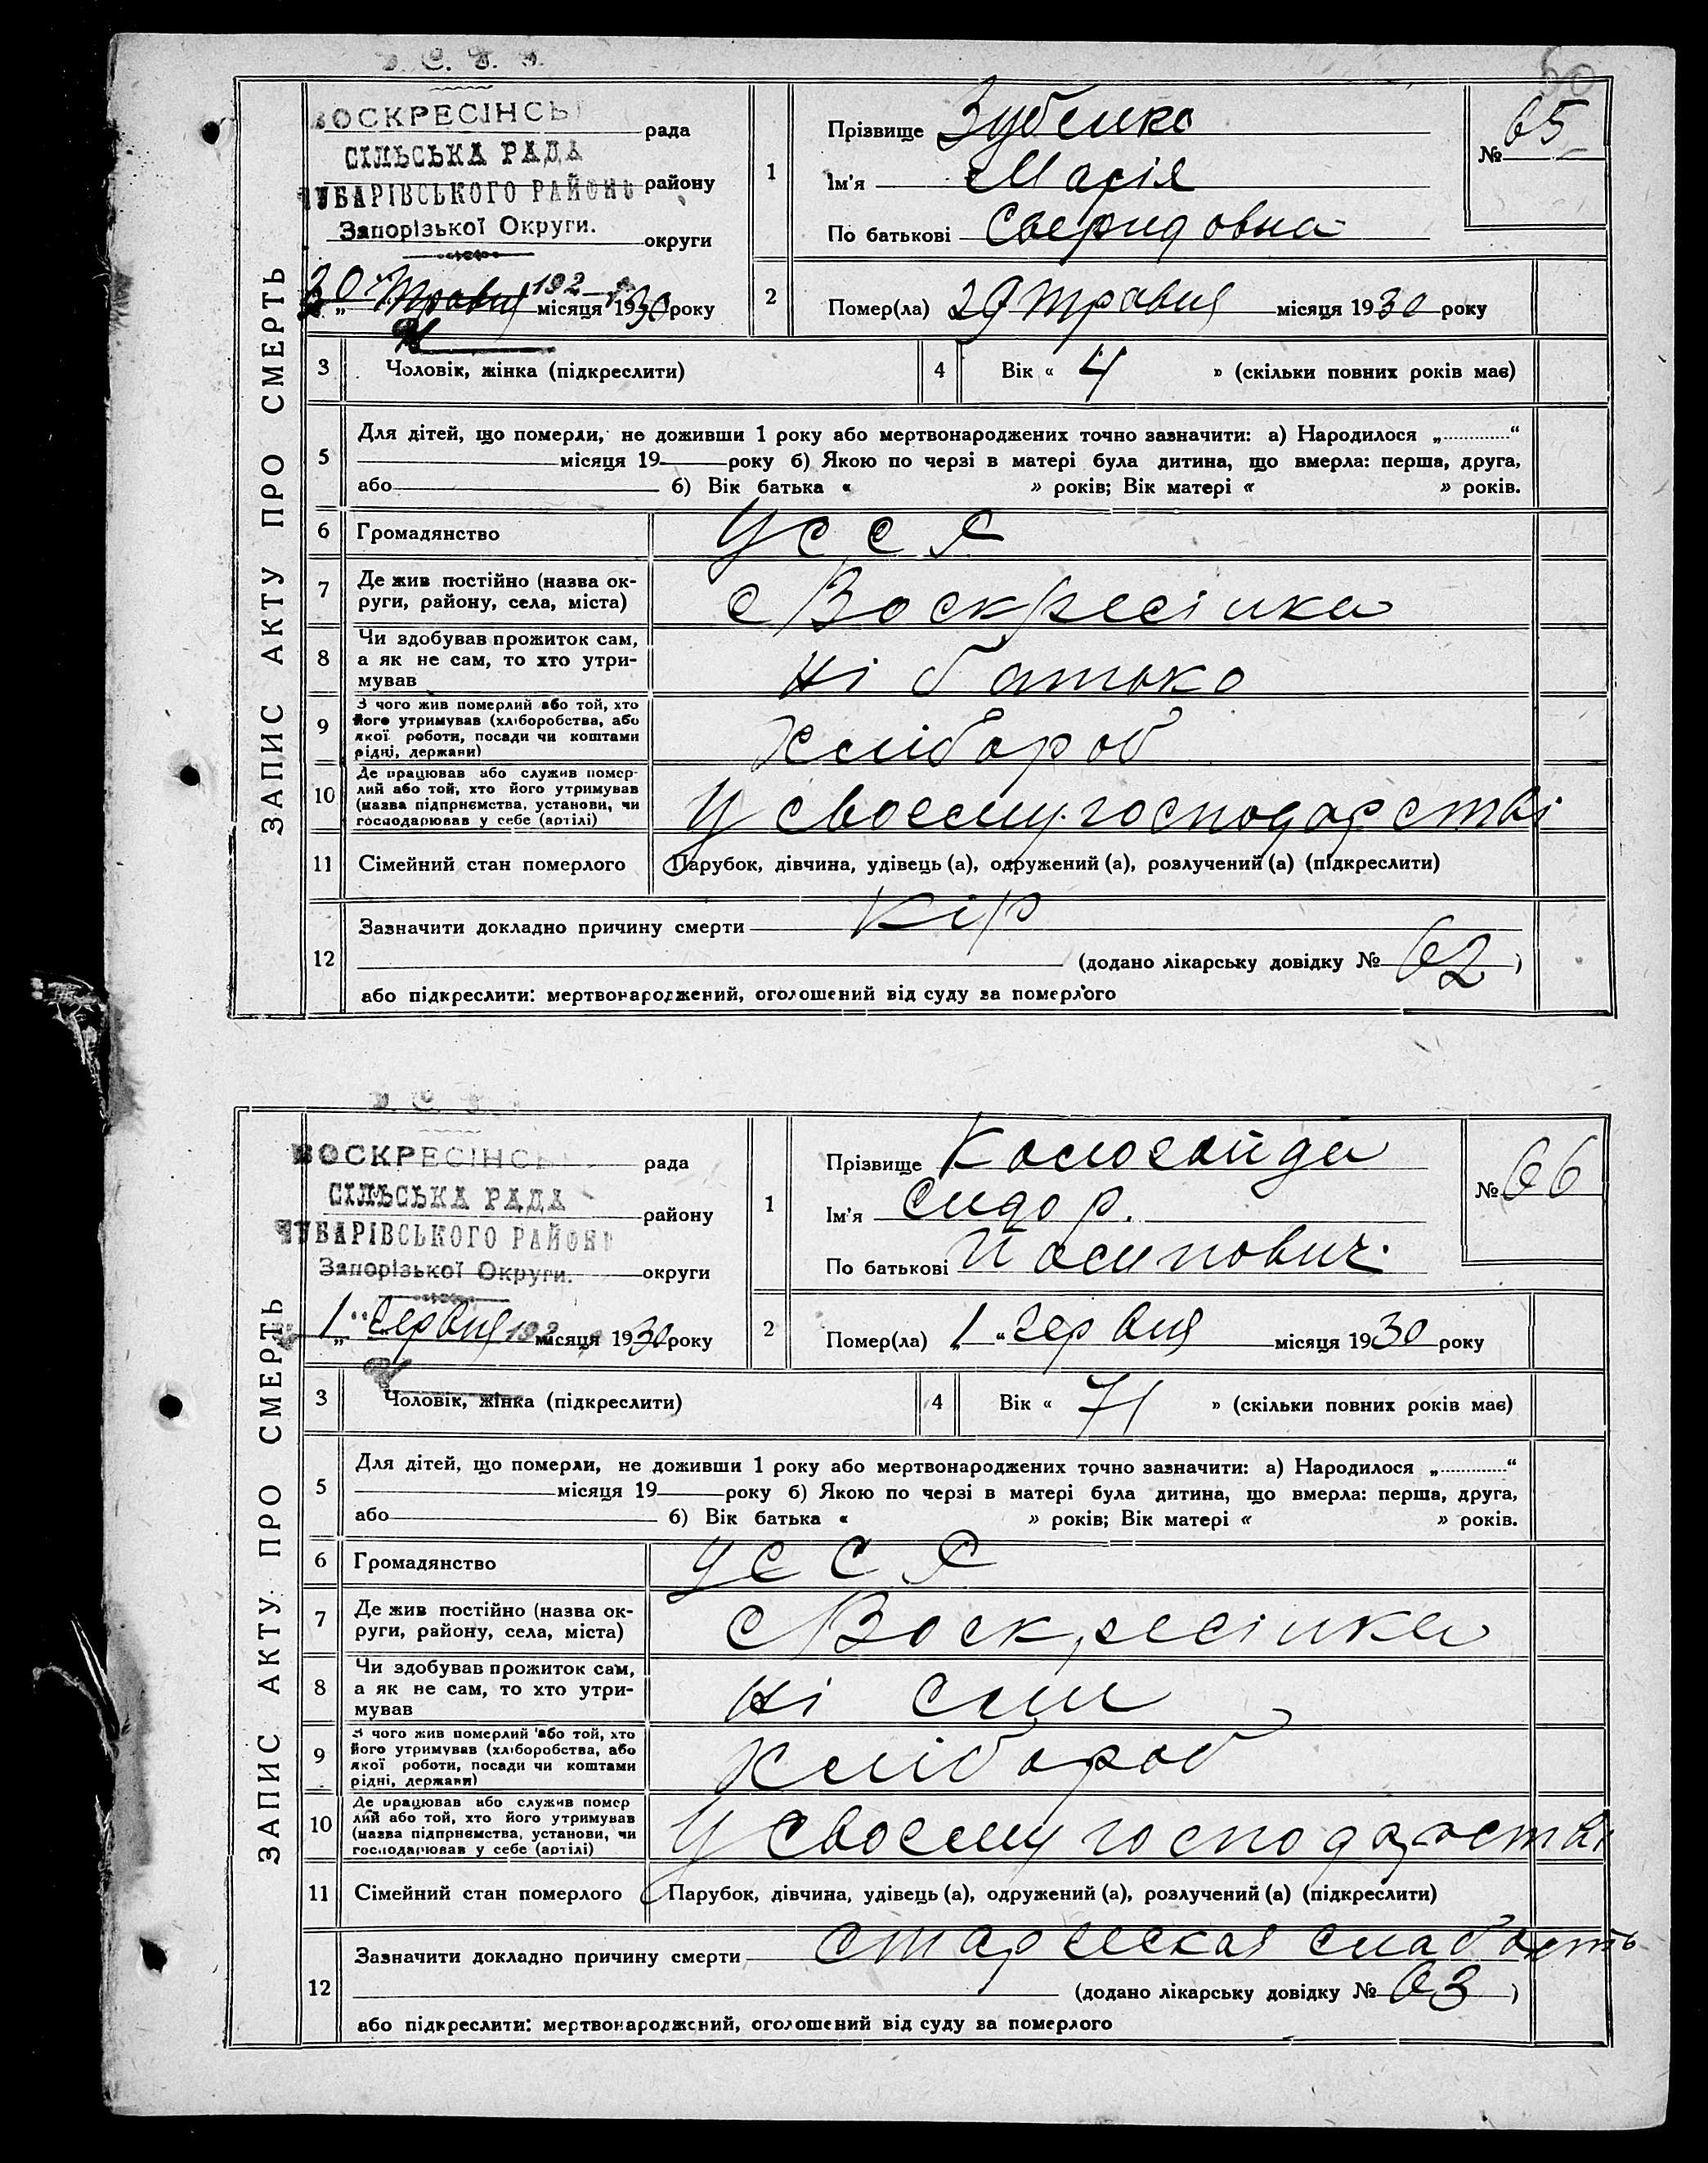 60
ЗАПИС АКТУ ПРО СМЕРТЬ
ВОСКРЕСІНСЬ рада
СІЛЬСЬКА РАДА
ЧУБАРІВСЬКОГО РАЙОНУ району
Запорізької Округи.
округи
30 „ Травня 192 місяця 1930 року
1
Прізвище Зубенко
Ім'я Марія
По батькові Сверидовна
№ 65
2
Помер(ла) 29 травня місяця 1930 року
3 Чоловік, жінка (підкреслити)
4 Вік « 4 » (скільки повних років має)
5 Для дітей, що померли, не доживши 1 року або мертвонароджених точно зазначити: а) Народилося „ “
місяця 19 року б) Якою по черзі в матері була дитина, що вмерла: перша, друга,
або б) Вік батька « » років; Вік матері « » років.
6 Громадянство УССР
7 Де жив постійно (назва ок-
руги, району, села, міста) с Воскресінка
8 Чи здобував прожиток сам,
а як не сам, то хто утри-
мував ні батько
9 З чого жив померлий або той, хто
його утримував (хліборобства, або
якої роботи, посади чи коштами
рідні, держави) Хлібороб
10 Де працював або служив помер-
лий або той, хто його утримував
(назва підприємства, установи, чи
господарював у себе (артілі) У своєму господарстві
11 Сімейний стан померлого Парубок, дівчина, удівець (а), одружений (а), розлучений (а) (підкреслити)
12 Зазначити докладно причину смерти Кір
(додано лікарську довідку № 62 )
або підкреслити: мертвонароджений, оголошений від суду за померлого
ЗАПИС АКТУ ПРО СМЕРТЬ
ВОСКРЕСІНС рада
СІЛЬСЬКА РАДА
ЧУБАРІВСЬКОГО РАЙОНУ району
Запорізької Округи. округи
1 „ червня 192 місяця 1930 року
1
Прізвище
Ім'я Сидор.
По батькові Йосипович.
№ 66
2
Помер(ла) 1 „ червня місяця 1930 року
3 Чоловік, жінка (підкреслити)
4 Вік « 71 » (скільки повних років має)
5 Для дітей, що померли, не доживши 1 року або мертвонароджених точно зазначити: а) Народилося „ “
місяця 19 року б) Якою по черзі в матері була дитина, що вмерла: перша, друга,
або б) Вік батька « » років; Вік матері « » років.
6 Громадянство УССР
7 Де жив постійно (назва ок-
руги, району, села, міста) с Воскресінка
8 Чи здобував прожиток сам,
а як не сам, то хто утри-
мував ні син
9 З чого жив померлий або той, хто
його утримував (хліборобства, або
якої роботи, посади чи коштами
рідні, держави) Хлібороб
10 Де працював або служив помер
лий або той, хто його утримував
(назва підприємства, установи, чи
господарював у себе (артілі) У своєму господарстві
11 Сімейний стан померлого Парубок, дівчина, удівець (а), одружений (а), розлучений (а) (підкреслити)
12 Зазначити докладно причину смерти старческая слабость
(додано лікарську довідку № 63 )
або підкреслити: мертвонароджений, оголошений від суду за померлого